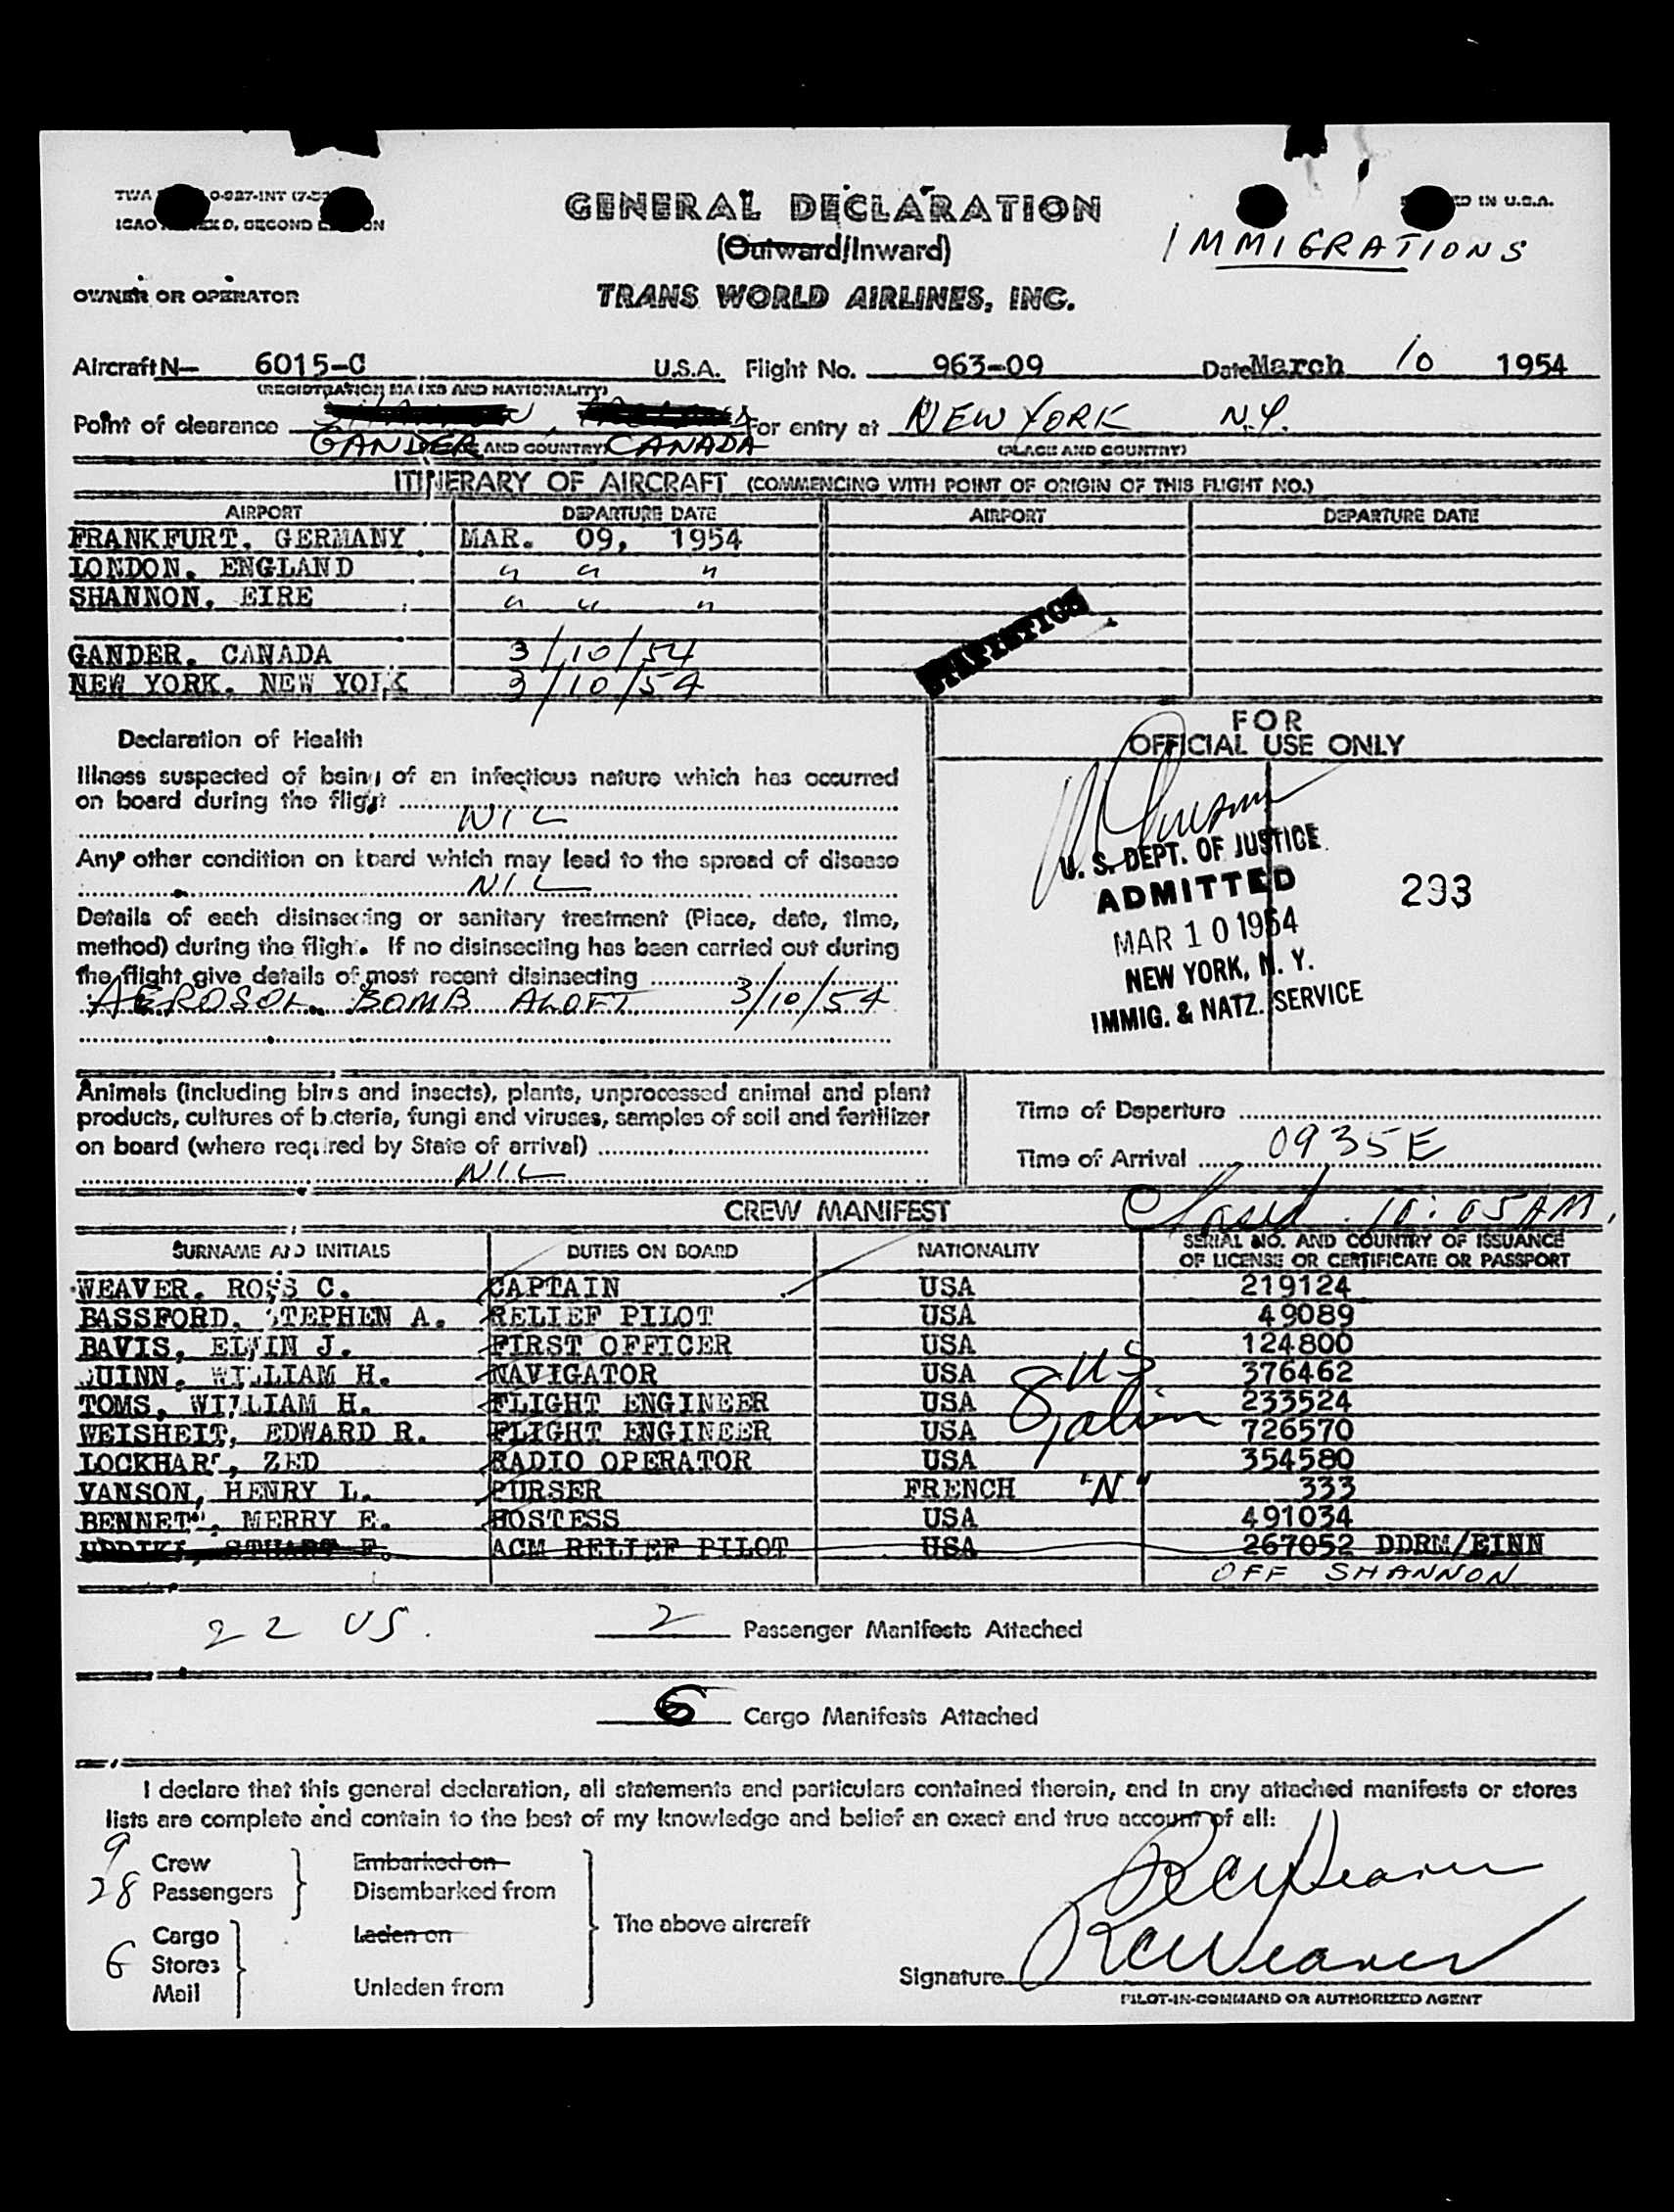 TWA 0-927-INT (7-5 IN U.S.A.
ICAO D, SECOND
GENERAL DECLARATION
(Outward/Inward)
IMMIGRATIONS
OWNER OR OPERATOR TRANS WORLD AIRLINES, INC.
Aircraft N- 6015-C U.S.A. Flight No. 963-09 Date March 10 1954
(REGISTRATION MARKS AND NATIONALITY)
Point of clearance For entry at NEW YORK N.Y.
GANDER AND COUNTRY CANADA (PLACE AND COUNTRY)
ITINERARY OF AIRCRAFT (COMMENCING WITH POINT OF ORIGIN OF THIS FLIGHT NO.)
AIRPORT DEPARTURE DATE AIRPORT DEPARTURE DATE
FRANKFURT, GERMANY MAR. 09, 1954
LONDON, ENGLAND " " "
SHANNON, EIRE " " "
STATISTICS
GANDER, CANADA 3/10/54
NEW YORK, NEW YORK 3/10/54
FOR
OFFICIAL USE ONLY
Declaration of Health
Illness suspected of being of an infectious nature which has occurred
on board during the flight
NIL
Any other condition on board which may lead to the spread of disease
NIL
Details of each disinsecting or sanitary treatment (Place, date, time,
method) during the flight. If no disinsecting has been carried out during
the flight give details of most recent disinsecting
AEROSOL BOMB ALOFT 3/10/54
U. S. DEPT. OF JUSTICE
ADMITTED
MAR 10 1954
NEW YORK, N. Y.
IMMIG. & NATZ. SERVICE
293
Animals (including birds and insects), plants, unprocessed animal and plant
products, cultures of bacteria, fungi and viruses, samples of soil and fertilizer
on board (where required by State of arrival)
NIL
Time of Departure
Time of Arrival 0935E
CREW MANIFEST
10:05 AM.
SURNAME AND INITIALS DUTIES ON BOARD NATIONALITY SERIAL NO. AND COUNTRY OF ISSUANCE
OF LICENSE OR CERTIFICATE OR PASSPORT
WEAVER, ROSS C. CAPTAIN USA 219124
BASSFORD, STEPHEN A. RELIEF PILOT USA 49089
BAVIS, ELWIN J. FIRST OFFICER USA 124800
QUINN, WILLIAM H. NAVIGATOR USA 376462
TOMS, WILLIAM H. FLIGHT ENGINEER USA 233524
WEISHEIT, EDWARD R. FLIGHT ENGINEER USA 726570
LOCKHART, ZED RADIO OPERATOR USA 354580
VANSON, HENRY L. PURSER FRENCH "N" 333
BENNETT, MERRY E. HOSTESS USA 491034
ACM RELIEF PILOT USA 267052 DDRM/EINN
OFF SHANNON
8 US
1 alien
22 US. 2 Passenger Manifests Attached
6 Cargo Manifests Attached
I declare that this general declaration, all statements and particulars contained therein, and in any attached manifests or stores
lists are complete and contain to the best of my knowledge and belief an exact and true account of all:
9 Crew Embarked on
28 Passengers Disembarked from
The above aircraft
Cargo Laden on
6 Stores
Mail Unladen from
RCWeaver
Signature RCWeaver
PILOT-IN-COMMAND OR AUTHORIZED AGENT